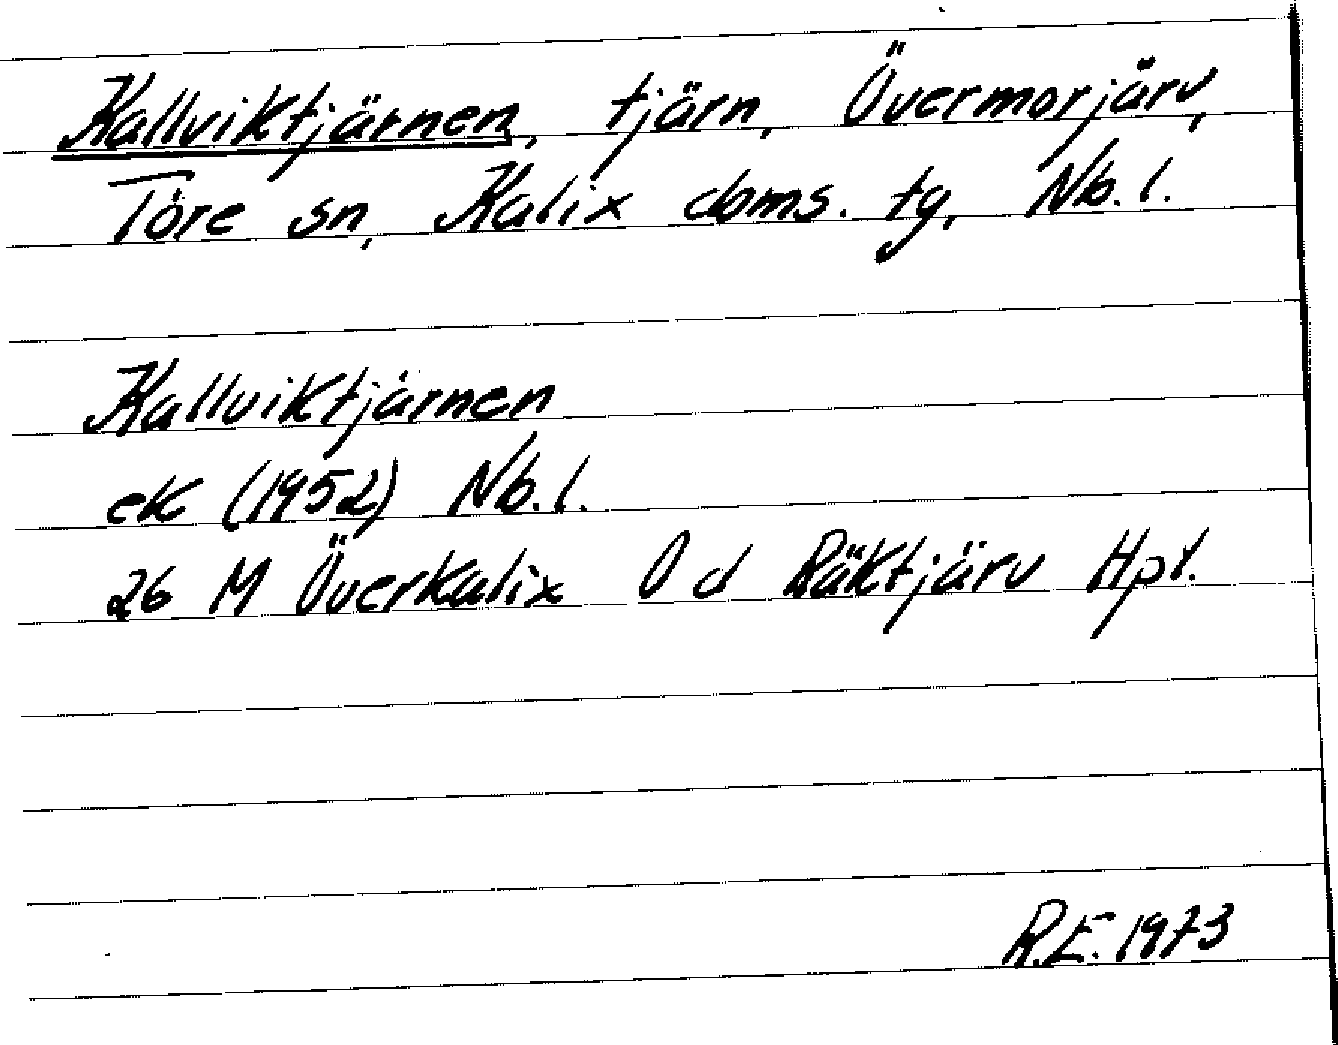 Kallviktjärnen, tjärn, Övermorjärv,
Töre sn, Kalix doms. tg, Nb. l.
Kallviktjärnen
ek (1952) Nb. l.
26 M Överkalix O d Räktjärv Hpl.
R.E. 1973